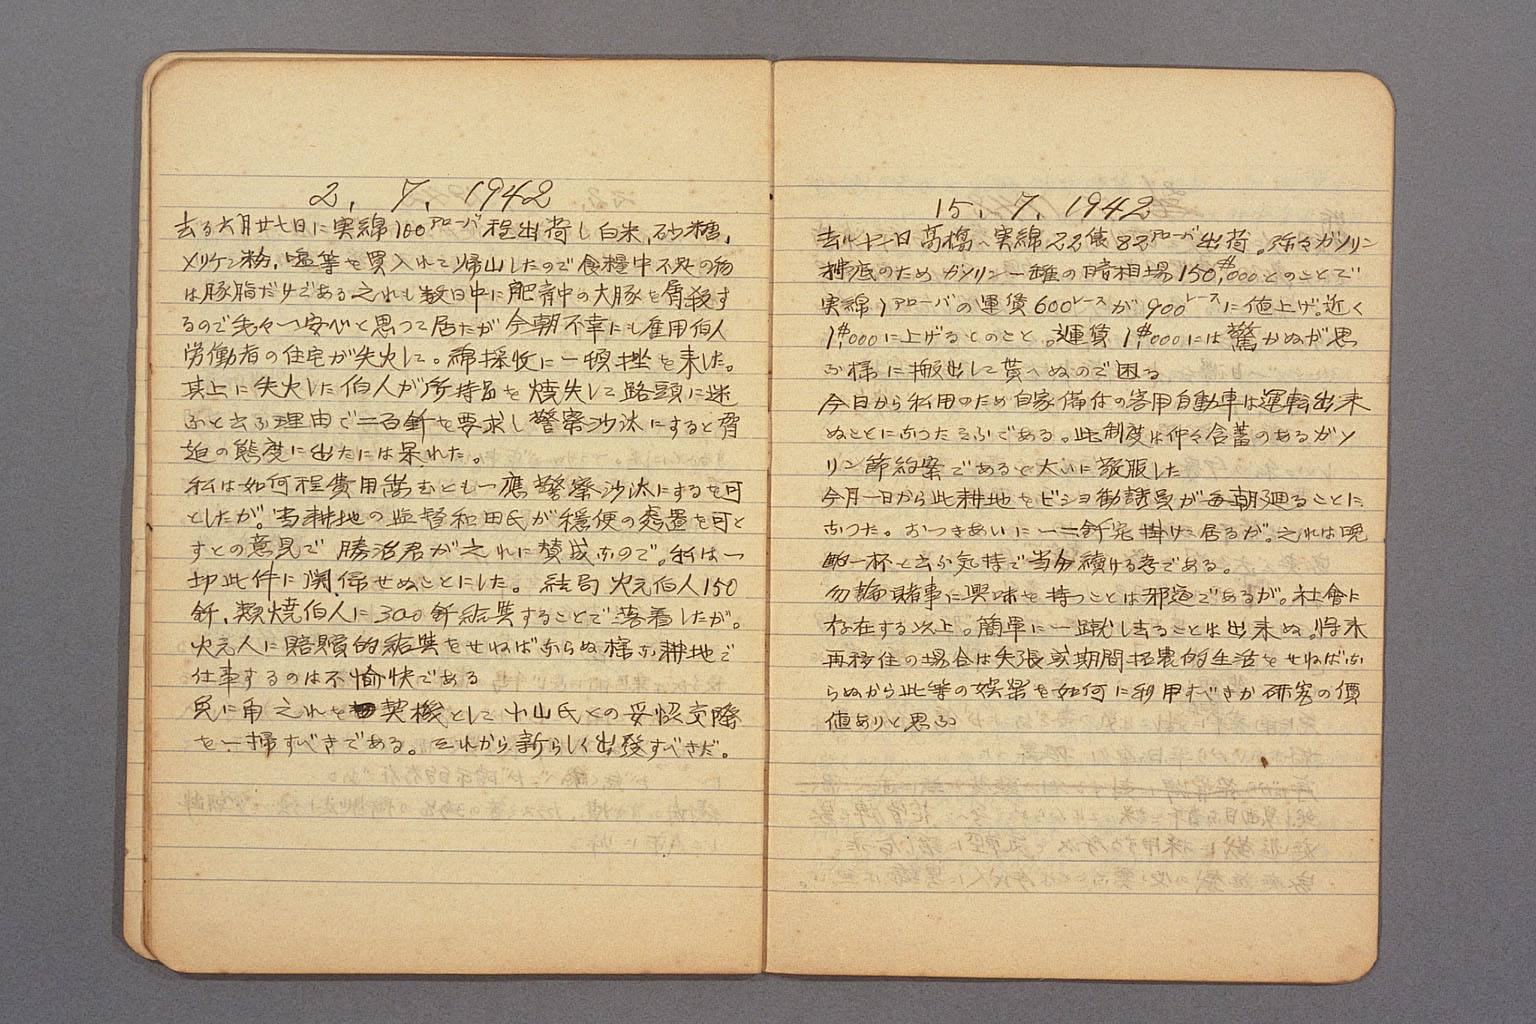 2. 7. 1942
去る六月廿七日に実綿100アローバ程出荷し白米、砂糖、
メリケン粉、塩等を買入れて帰山したので食糧中不足の物
は豚脂だけである之れも数日中に肥育中の大豚を屠殺す
るので先々一安心と思つて居たが今朝不幸にも雇用伯人
労働者の住宅が失火して。綿採収に一頓挫を来した。
其上に失火した伯人が所持品を焼失して路頭に迷
ふと云ふ理由で二百釬を要求し警察沙汰にすると脅
迫の態度に出たには呆れた。
私は如何程費用嵩むとも一應警察沙汰にするを可
としたが。当耕地の監督和田氏が穏便の処置を可と
すとの意見で 勝治君が之れに賛成なので。私は一
切此件に関係せぬことにした。 結局 火元伯人150
釬、類焼伯人に300釬給与することで落着したが。
火元人に賠償的給与をせねばならぬ様な耕地で
仕事するのは不愉快である
兎に角 之れを契機として小山氏との妥協交際
を一掃すべきである。それから新らしく出發すべきだ。
15. 7. 1942
去ル十一日高橋へ実綿22俵82アローバ出荷。弥々ガソリン
拂底のためガソリン一罐の暗相場150$000とのことで
実綿1アローバの運賃600レースが900レースに値上げ。近く
1$000に上げるとのこと。運賃1$000には驚かぬが思
ふ様に搬出して貰へぬので困る
今日から私用のため自家備付の客用自動車は運転出来
ぬことになつたさふである。此制度は仲々含蓄のあるガソ
リン節約案であると大いに敬服した
今月一日から此耕地をビショ勧誘員が毎朝廻ることに
なつた。おつきあいに一二釬宛掛けて居るが。之れは晩
酌一杯と云ふ気持で当分續ける考である。
勿論賭事に興味を持つことは邪道であるが。社會に
存在する以上。簡単に一蹴し去ることは出来ぬ。将来
再移住の場合は矢張或期間拓農的生活をせねばな
らぬから此等の娯楽を如何に利用すべきか研究の價
値ありと思ふ